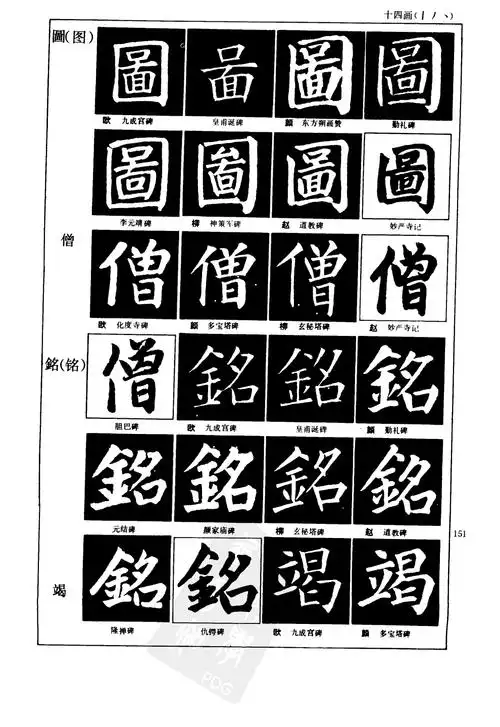 十四画(丨丿丶)
圖(图)
圖 圖 圖 圖
欧 九成宫碑 皇甫诞碑 颜 东方朔画赞 勤礼碑
圖 圖 圖 圖
李元靖碑 柳 神策军碑 赵 道教碑 妙严寺记
僧
僧 僧 僧 僧
欧 化度寺碑 颜 多宝塔碑 柳 玄秘塔碑 赵 妙严寺记
銘(铭)
僧 銘 銘 銘
胆巴碑 欧 九成宫碑 皇甫诞碑 颜 勤礼碑
銘 銘 銘 銘
元结碑 颜家庙碑 柳 玄秘塔碑 赵 道教碑
151
竭
銘 銘 竭 竭
隆禅碑 仇锷碑 欧 九成宫碑 颜 多宝塔碑
PDG